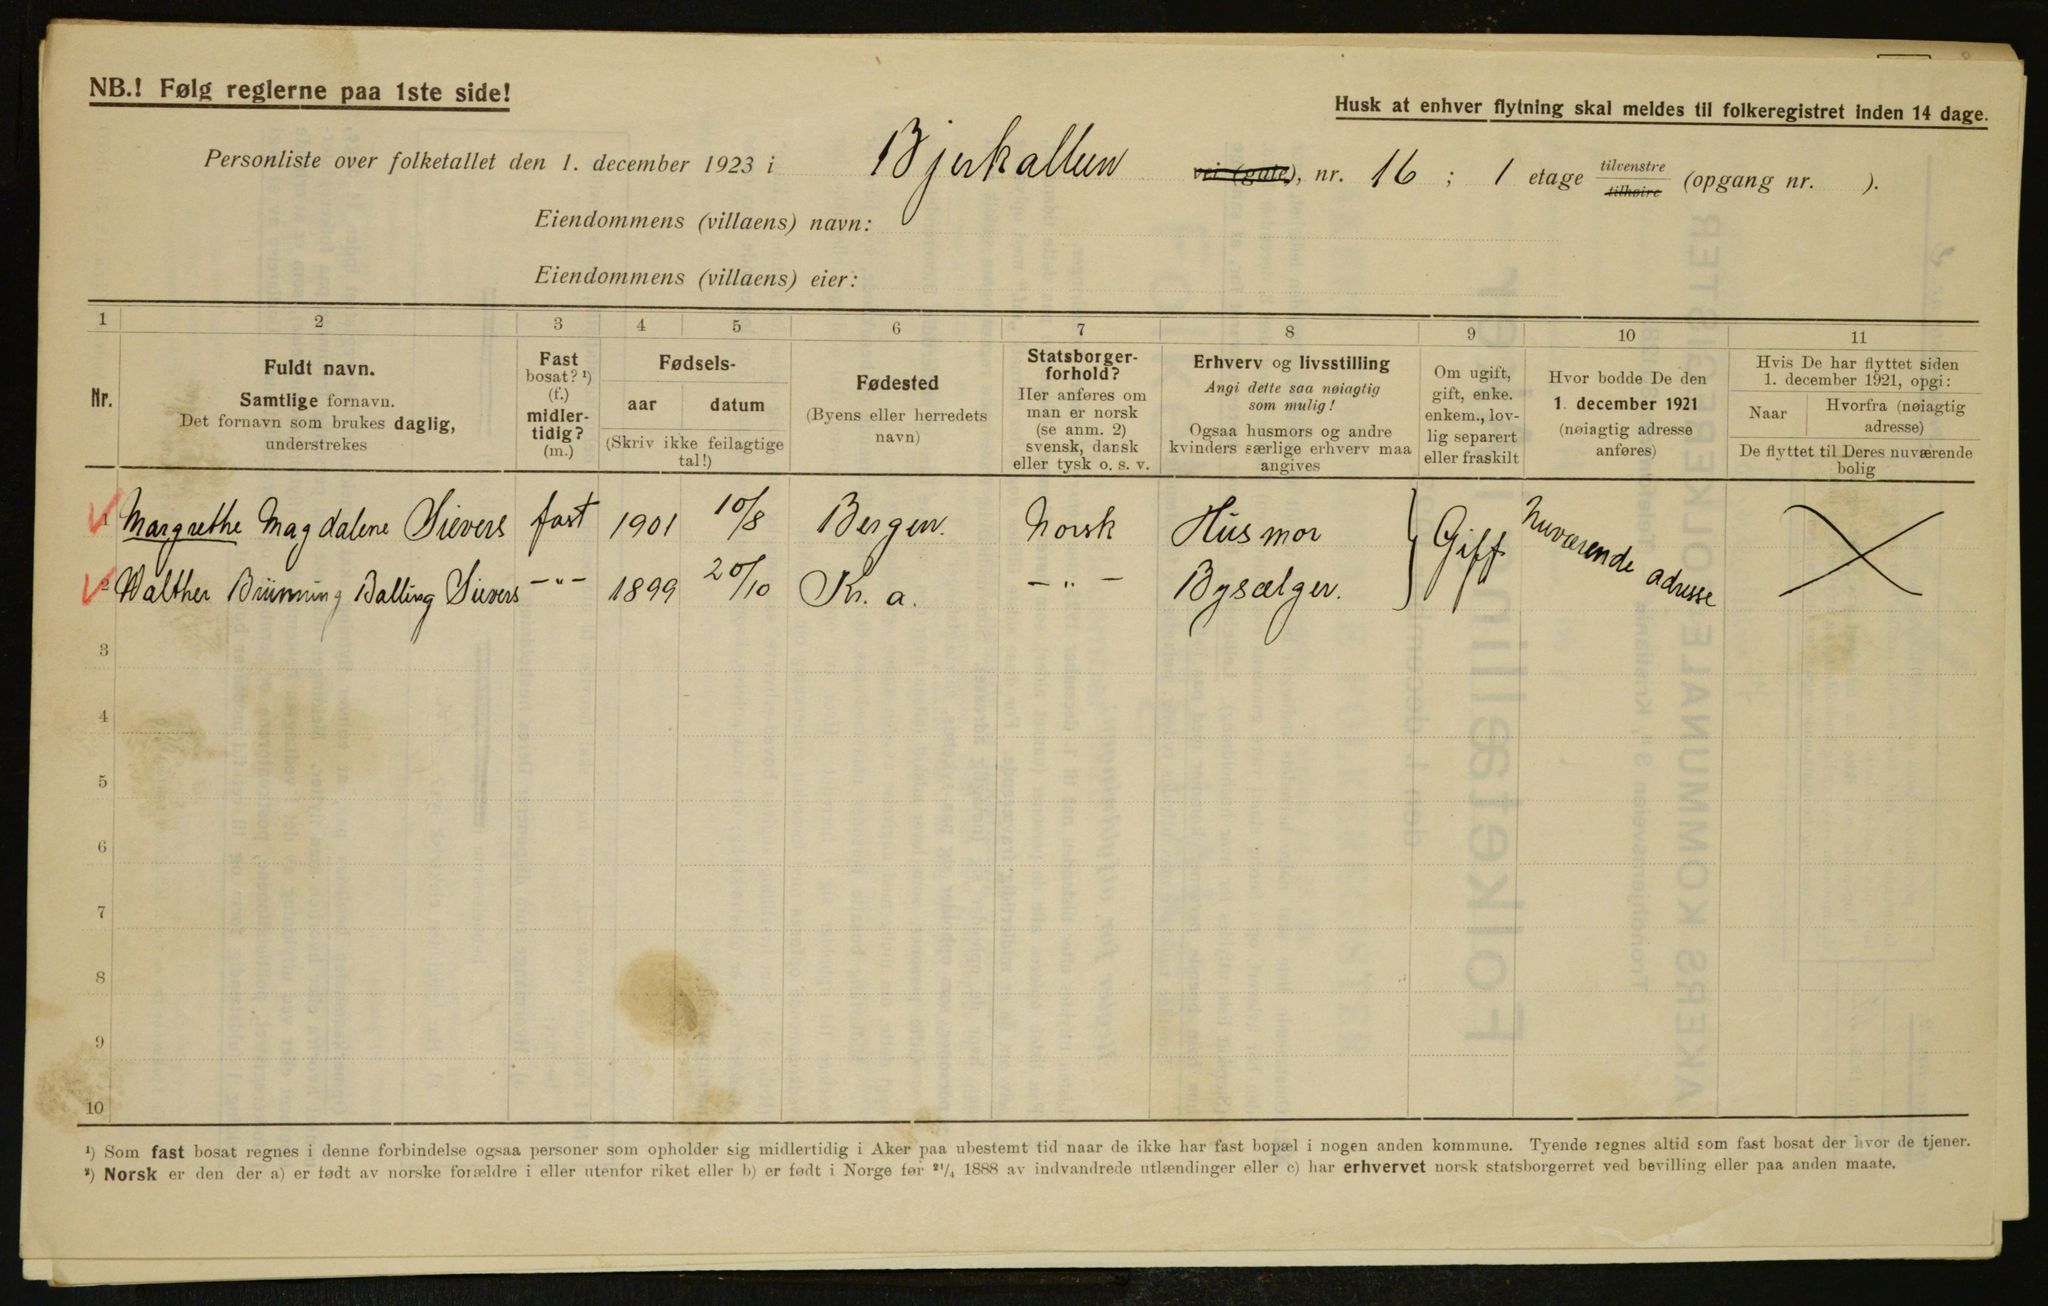 NB.! Følg reglerne paa 1ste side!
Husk at enhver flytning skal meldes til folkeregistret inden 14 dage.
Personliste over folketallet den 1. december 1923 i Bjerkalleen vei (gate), nr. 16 ; 1 etage tilvenstre tilhøire (opgang nr. ).
Eiendommens (villaens) navn:
Eiendommens (villaens) eier:
1 2 3 4 5 6 7 8 9 10 11
Nr.
Fuldt navn.
Samtlige fornavn.
Det fornavn som brukes daglig,
understrekes
Fast
bosat? ¹)
(f.)
midler-
tidig?
(m.)
Fødsels-
aar datum
(Skriv ikke feilagtige
tal!)
Fødested
(Byens eller herredets
navn)
Statsborger-
forhold?
Her anføres om
man er norsk
(se anm. 2)
svensk, dansk
eller tysk o. s. v.
Erhverv og livsstilling
Angi dette saa nøiagtig
som mulig!
Ogsaa husmors og andre
kvinders særlige erhverv maa
angives
Om ugift,
gift, enke.
enkem., lov-
lig separert
eller fraskilt
Hvor bodde De den
1. december 1921
(nøiagtig adresse
anføres)
Hvis De har flyttet siden
1. december 1921, opgi:
Naar
Hvorfra (nøiagtig
adresse)
De flyttet til Deres nuværende
bolig
1 Margrethe Magdalene Sievers fast 1901 10/8 Bergen. Norsk Husmor Gift Nuværende adresse
2 Walther Brünning Balling Sievers – " – 1899 20/10 Kr. a. – " – Bysælger.
3
4
5
6
7
8
9
10
¹) Som fast bosat regnes i denne forbindelse ogsaa personer som opholder sig midlertidig i Aker paa ubestemt tid naar de ikke har fast bopæl i nogen anden kommune. Tyende regnes altid som fast bosat der hvor de tjener.
²) Norsk er den der a) er født av norske forældre i eller utenfor riket eller b) er født i Norge før ²¹/₄ 1888 av indvandrede utlændinger eller c) har erhvervet norsk statsborgerret ved bevilling eller paa anden maate.